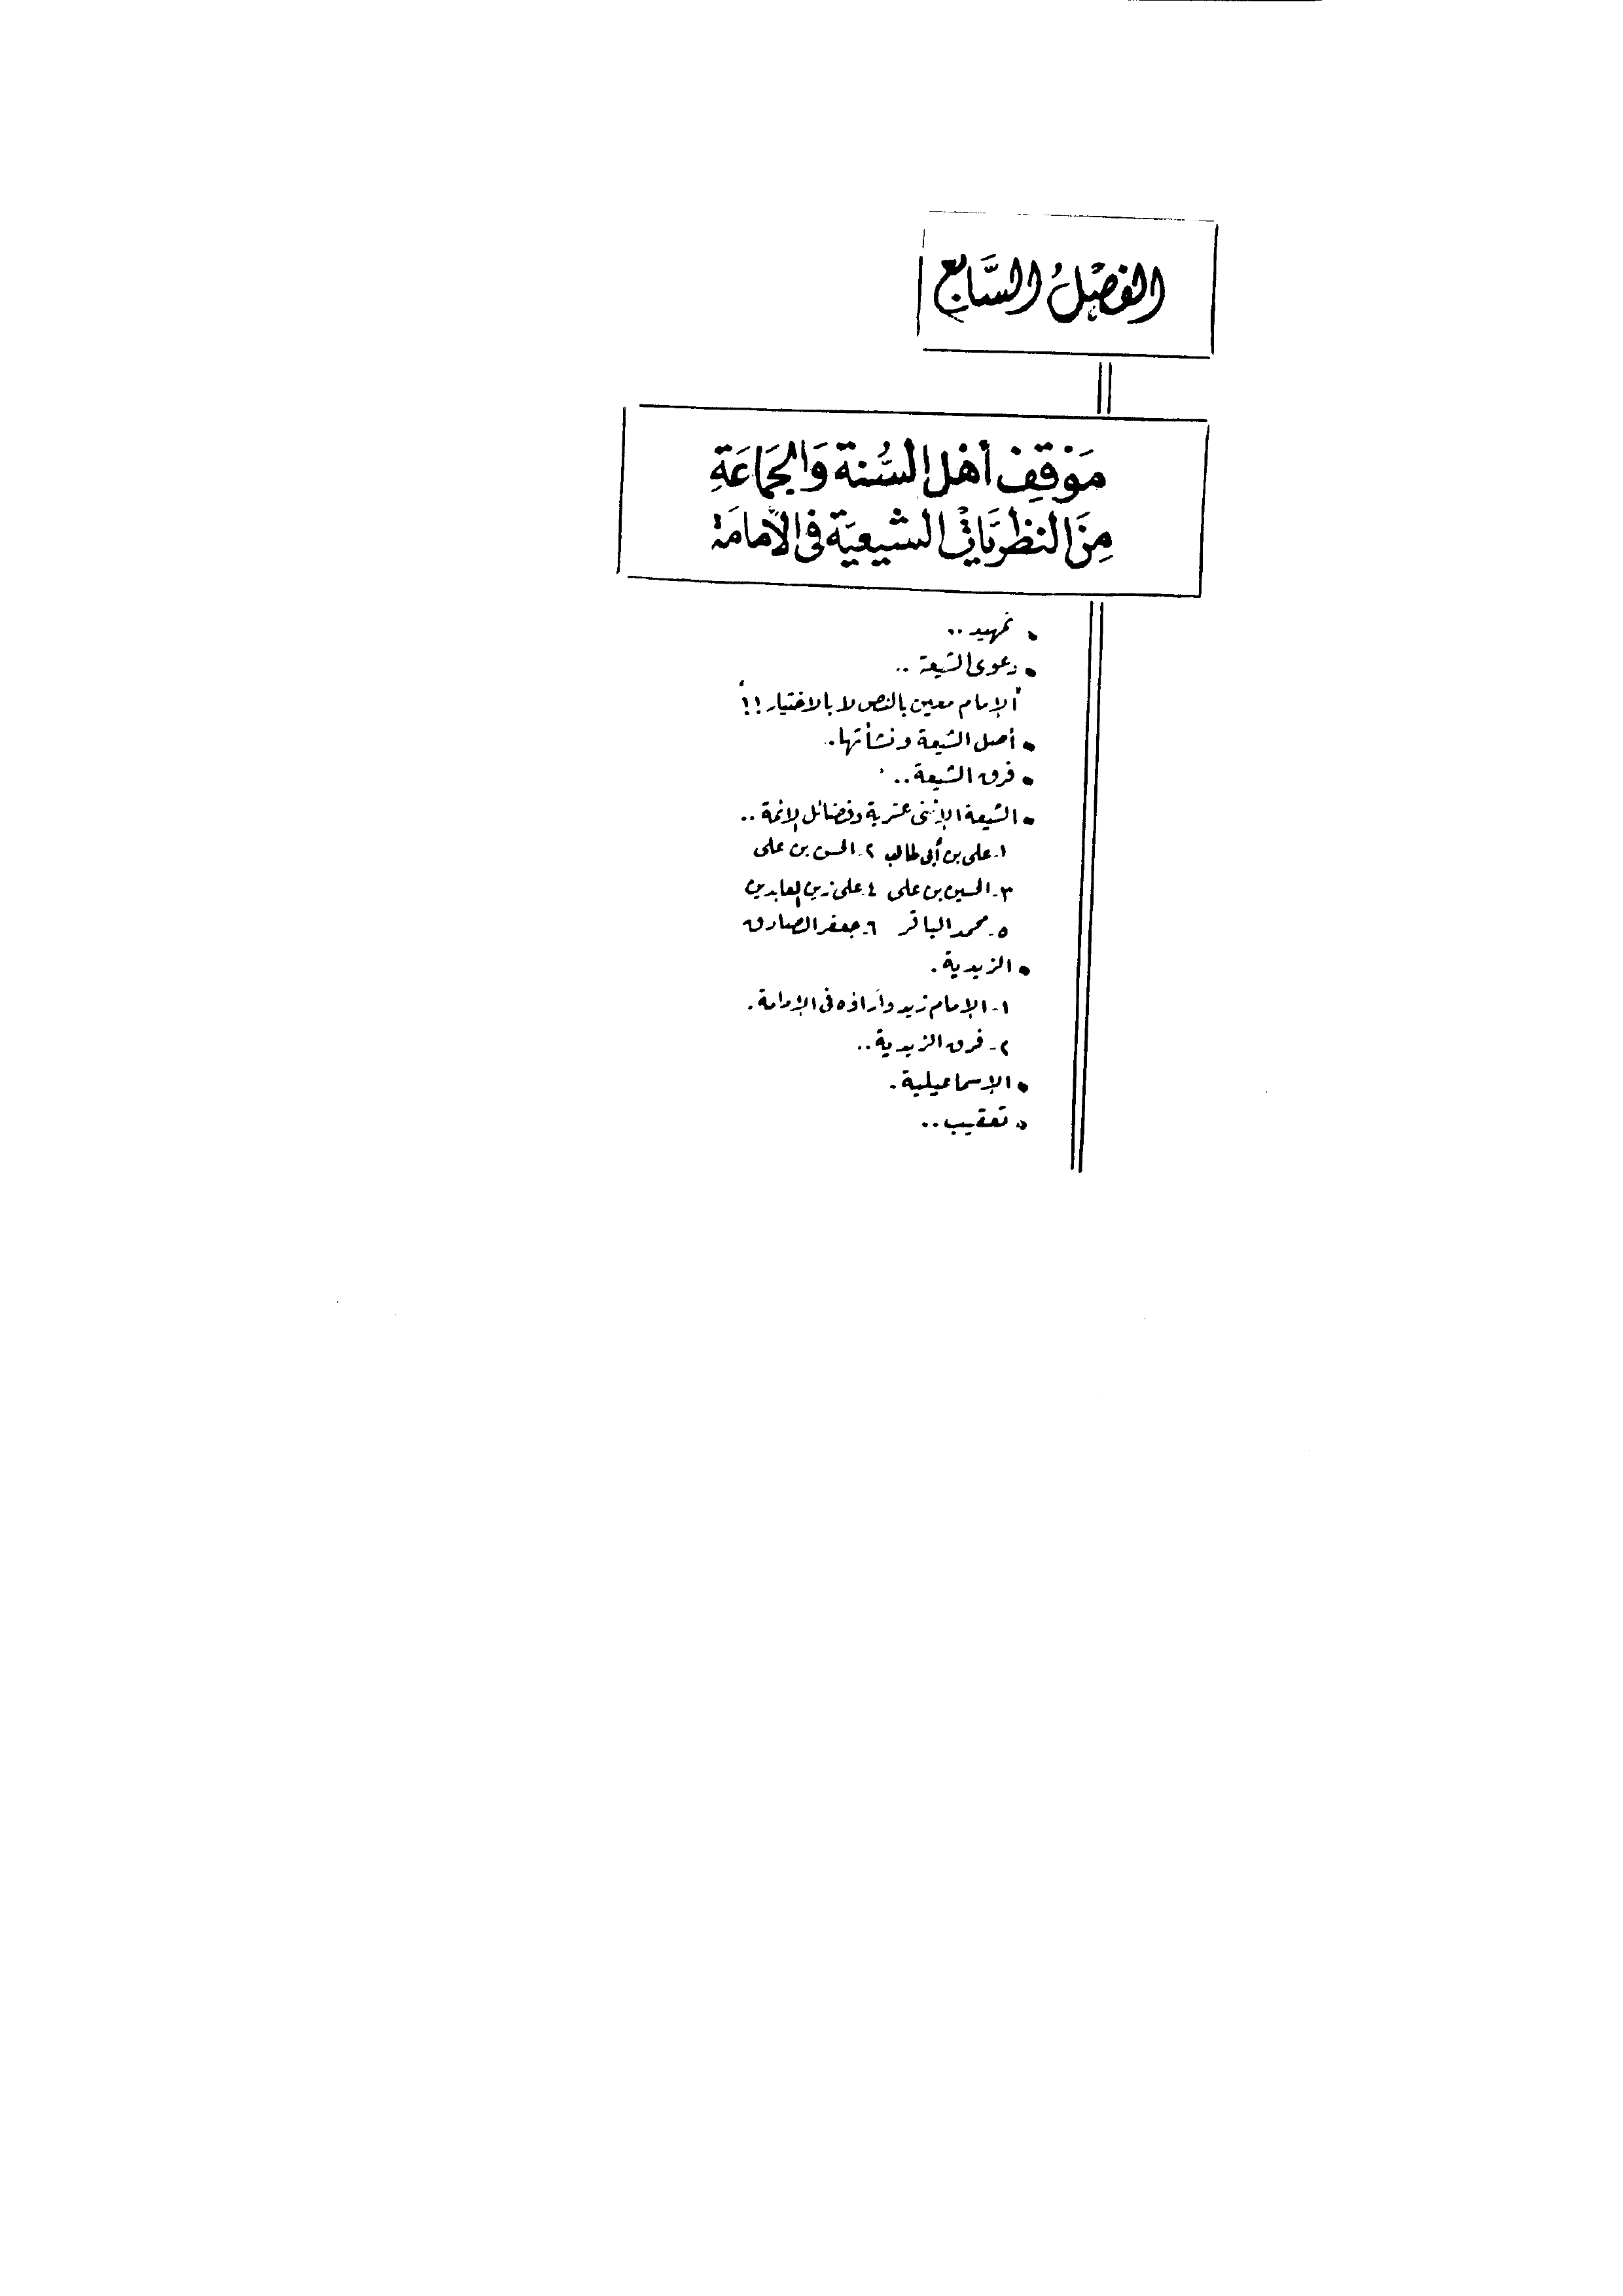 الفصْلُ السَّابع
مَوْقِف أهْل السُّنة وَالجَمَاعَةِ
مِنَ النظريَّات الشيعيَّة فى الأمامَة
• تمهيد ..
• دعوى الشيعة ..
"الإمام معين بالنص لا بالاختيار !!"
• أصل الشيعة ونشأتها ..
• فرق الشيعة ..
• الشيعة الإثنى عشرية وفضائل الائمة ..
١- على بن أبى طالب ٢- الحسن بن على
٣- الحسين بن على ٤- على زين العابدين
٥- محمد الباقر ٦- جعفر الصادق
• الزيدية .
١- الإمام زيد وآراؤه فى الإمامة .
٢- فرق الزيدية ..
• الإسماعيلية .
• تعقيب ..